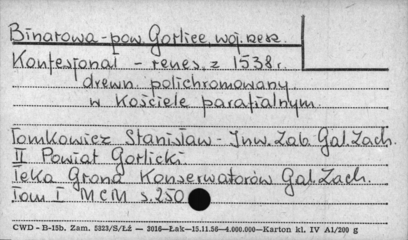 Binarowa - pow. Gorlice, woj. rzesz.
Konfesjonał - renes. z 1538 r.
drewn. polichromowany
w kościele parafialnym.
Tomkowicz Stanisław - Inw. Zab. Gal. Zach.
II Powiat Gorlicki.
Teka Grona Konserwatorów Gal. Zach.
Tom I MCM s. 250
CWD - B-15b. Zam. 5323/S/Łź — 3016—Łak—15.11.56—4.000.000—Karton kl. IV A1/200 g